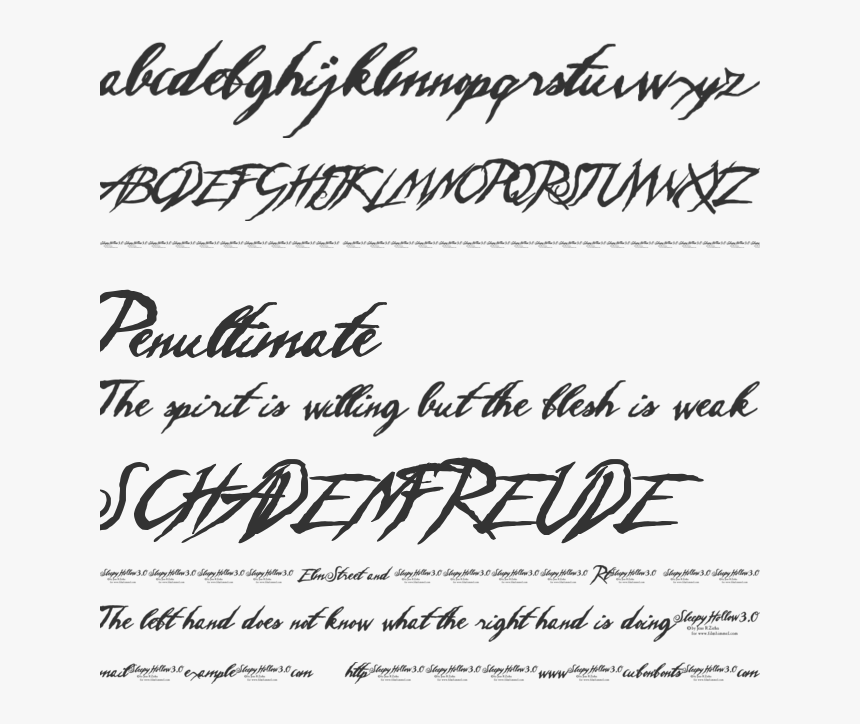 abcdefghijklmnopqrstuvwxyz
ABCDEFGHIJKLMNOPQRSTUVWXYZ
Penultimate
The spirit is willing but the flesh is weak
SCHADENFREUDE
Sleepy Hollow 3.0 Sleepy Hollow 3.0 Sleepy Hollow 3.0 Sleepy Hollow 3.0 Elm Street and Sleepy Hollow 3.0 Sleepy Hollow 3.0 Sleepy Hollow 3.0 Sleepy Hollow 3.0 Rt Sleepy Hollow 3.0 Sleepy Hollow 3.0 Sleepy Hollow 3.0
The left hand does not know what the right hand is doing Sleepy Hollow 3.0
mail Sleepy Hollow 3.0 example Sleepy Hollow 3.0 com http Sleepy Hollow 3.0 Sleepy Hollow 3.0 Sleepy Hollow 3.0 www Sleepy Hollow 3.0 cubonbonts Sleepy Hollow 3.0 com